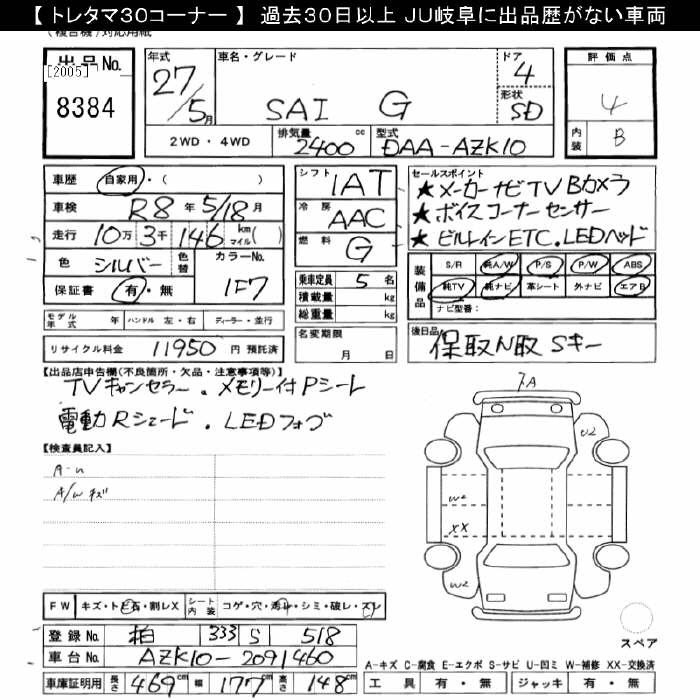 【 トレタマ30コーナー 】 過去30日以上 JU岐阜に出品歴がない車両
(複合機)対応用紙
出品No.
[2005]
8384
年式 27/5月
車名・グレード SAI G
ドア 4
形状 SD
評価点 4
内装 B
2WD・4WD
排気量 2400 cc
型式 DAA-AZK10
車歴 自家用・( )
車検 R8年5/18月
走行 10万3千146 km マイル( )
色 シルバー 色替 カラーNo. 1F7
保証書 有・無
モデル年式 年 ハンドル 左・右 ディーラー・並行
リサイクル料金 11950 円 預託済
シフト IAT
冷房 AAC
燃料 G
乗車定員 5 名
積載量 kg
総重量 kg
名変期限
月 日
セールスポイント
★メーカーナビTV Bカメラ
★ボイスコーナーセンサー
★ビルトインETC.LEDヘッド
装備品
S/R 純A/W P/S P/W ABS
純TV 純ナビ 革シート 外ナビ エアB
ナビ型番:
後日品
保取N取 Sキー
【出品店申告欄(不良箇所・欠品・注意事項等)】
TVキャンセラー.メモリー付Pシート
電動Rシェード.LEDフォグ
【検査員記入】
A-u
A/w キズ
フA
U2
W2
XX
W2
スペア
FW キズ・トビ石・割レX シート内装 コゲ・穴・汚レ・シミ・破レ・スレ
登録No. 柏 333 S 518
車台No. AZK10-2091460
車庫証明用 長さ 469 cm 幅 177 cm 高さ 148 cm
A-キズ C-腐食 E-エクボ S-サビ U-凹ミ W-補修 XX-交換済
工具 有・無 ジャッキ 有・無